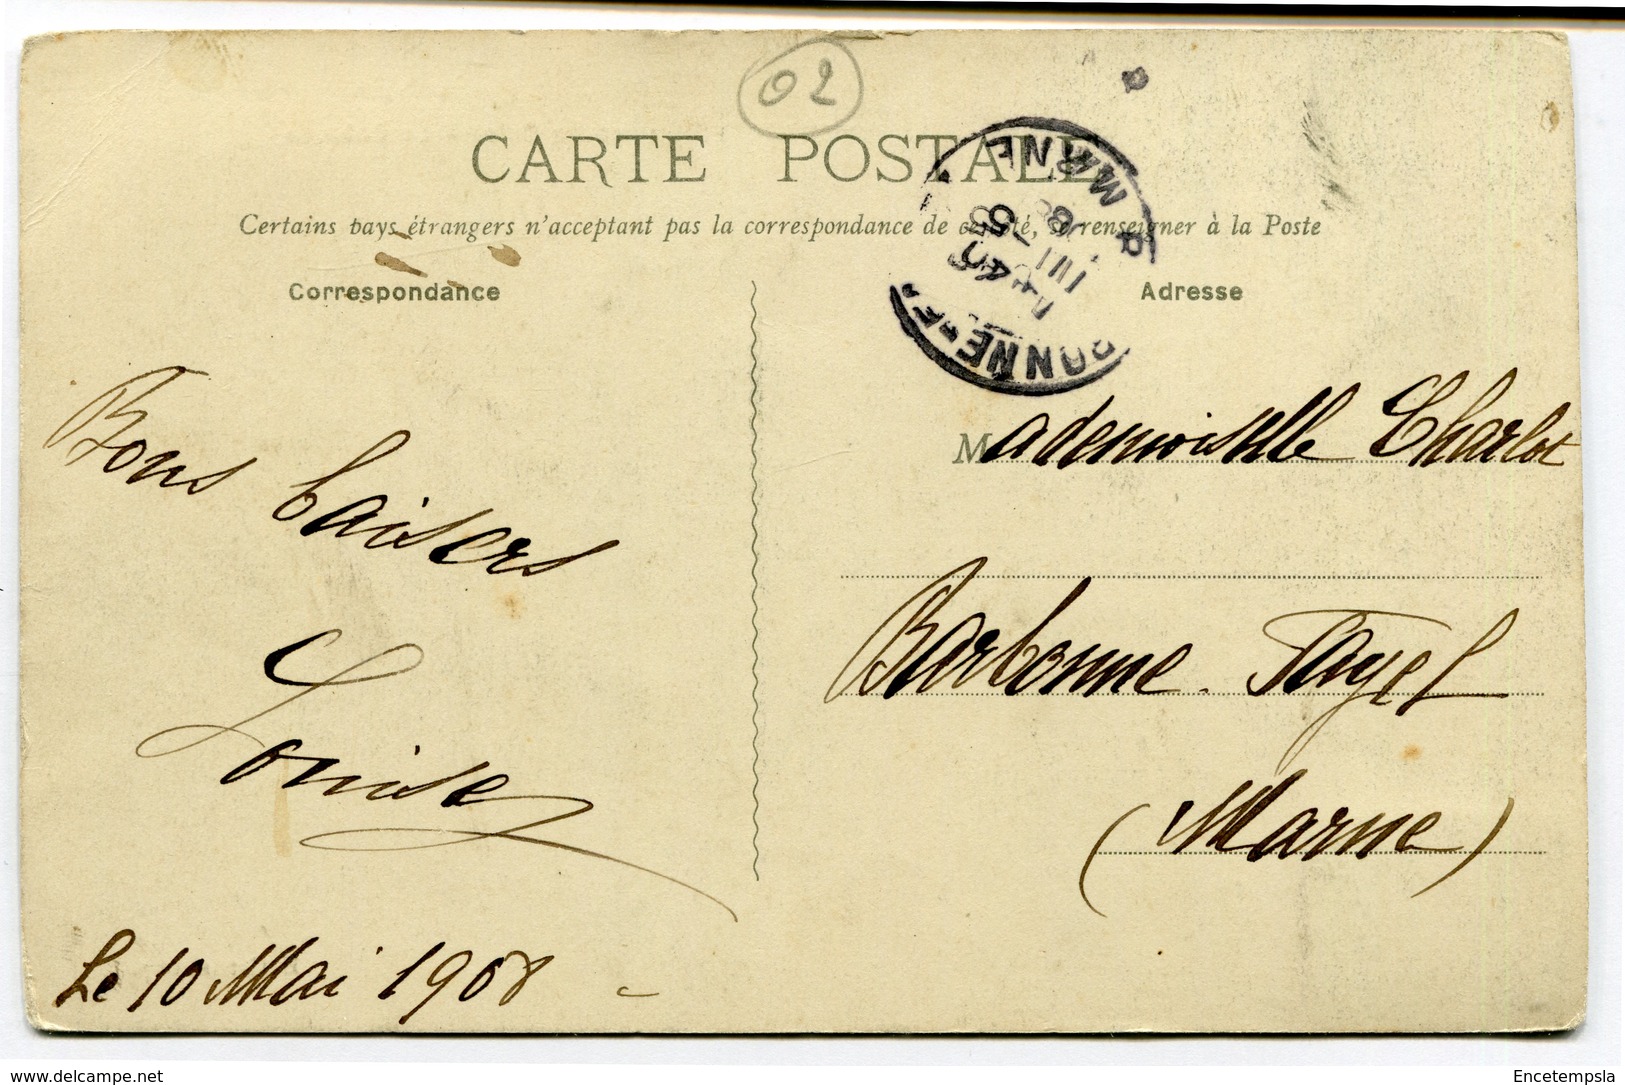 02
CARTE POSTALE
Certains pays étrangers n'acceptant pas la correspondance de ce côté, se renseigner à la Poste
Correspondance
Adresse
MARNE
Bons baisers
Louise
Le 10 Mai 1908
Mademoiselle Charlot
Barbonne-Fayel
(Marne)
www.delcampe.net
Encetempsla